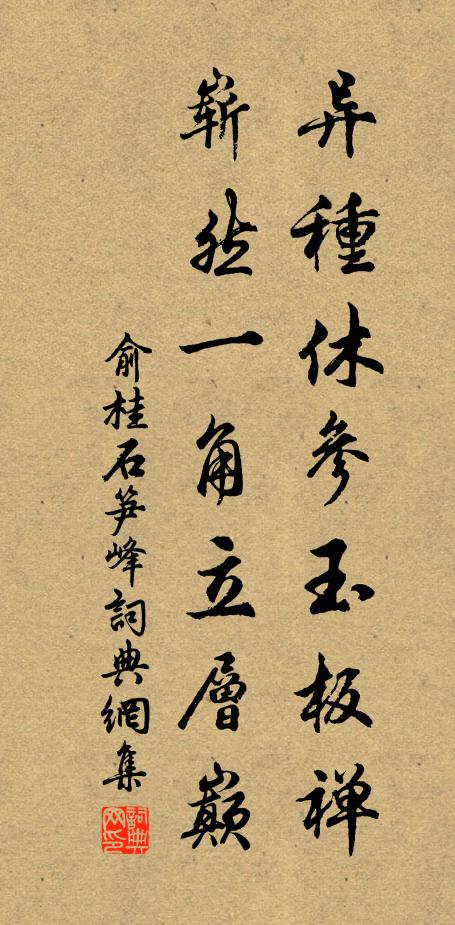 异種休參玉板禅
嶄然一角立層巔
俞桂石笋峰詞典網集
詞典網印